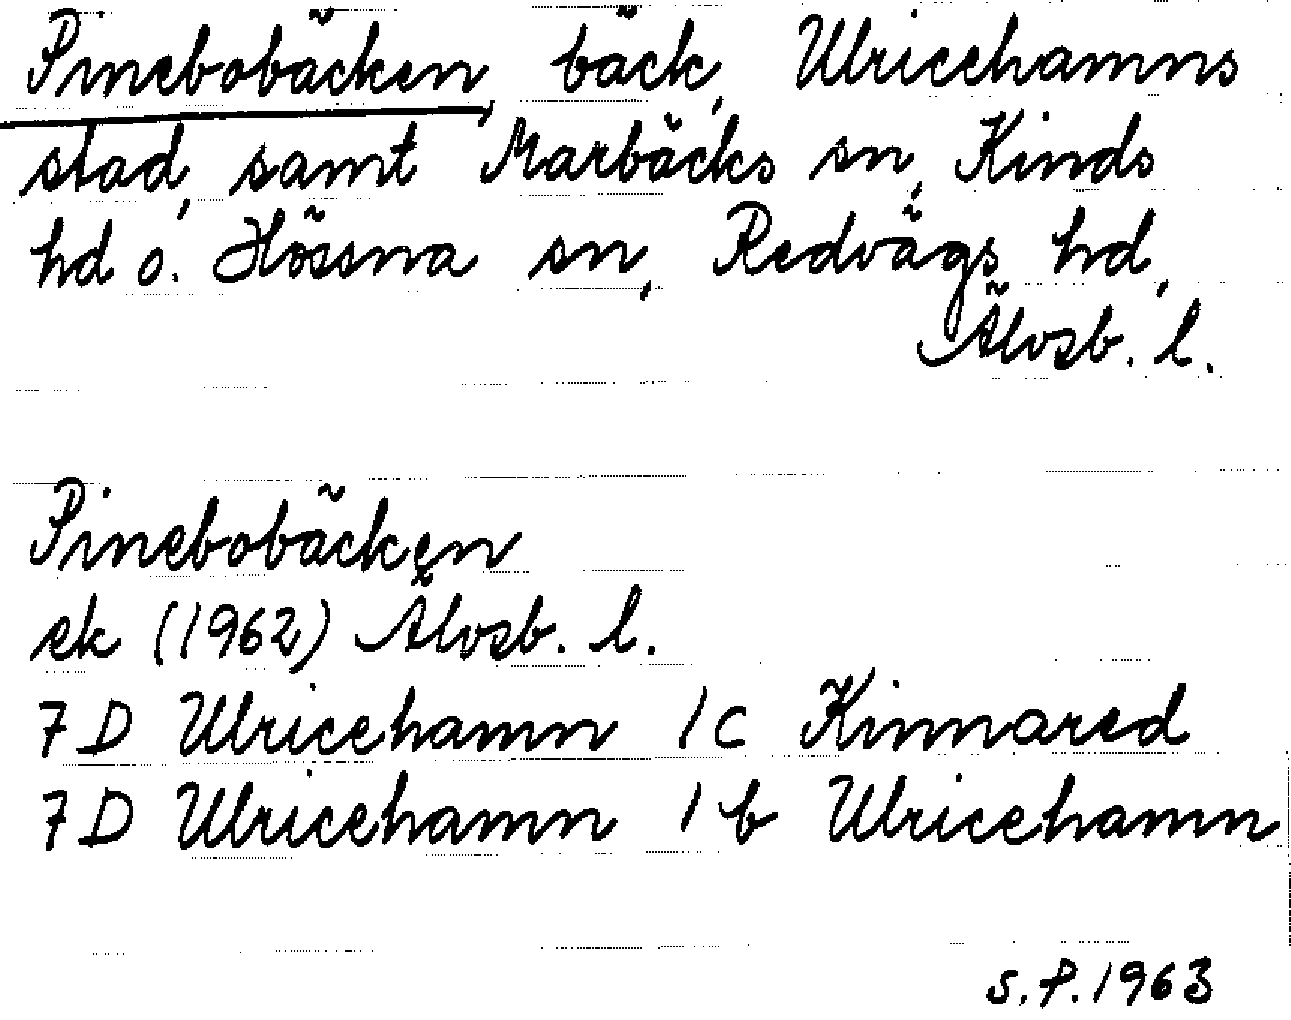 Pinebobäcken, bäck, Ulricehamns
stad, samt Marbäcks sn, Kinds
hd o. Hössna sn, Redvägs hd,
Älvsb. l.
Pinebobäcken
ek (1962) Älvsb. l.
7 D Ulricehamn 1 c Kinnared
7 D Ulricehamn 1 b Ulricehamn
S.P. 1963